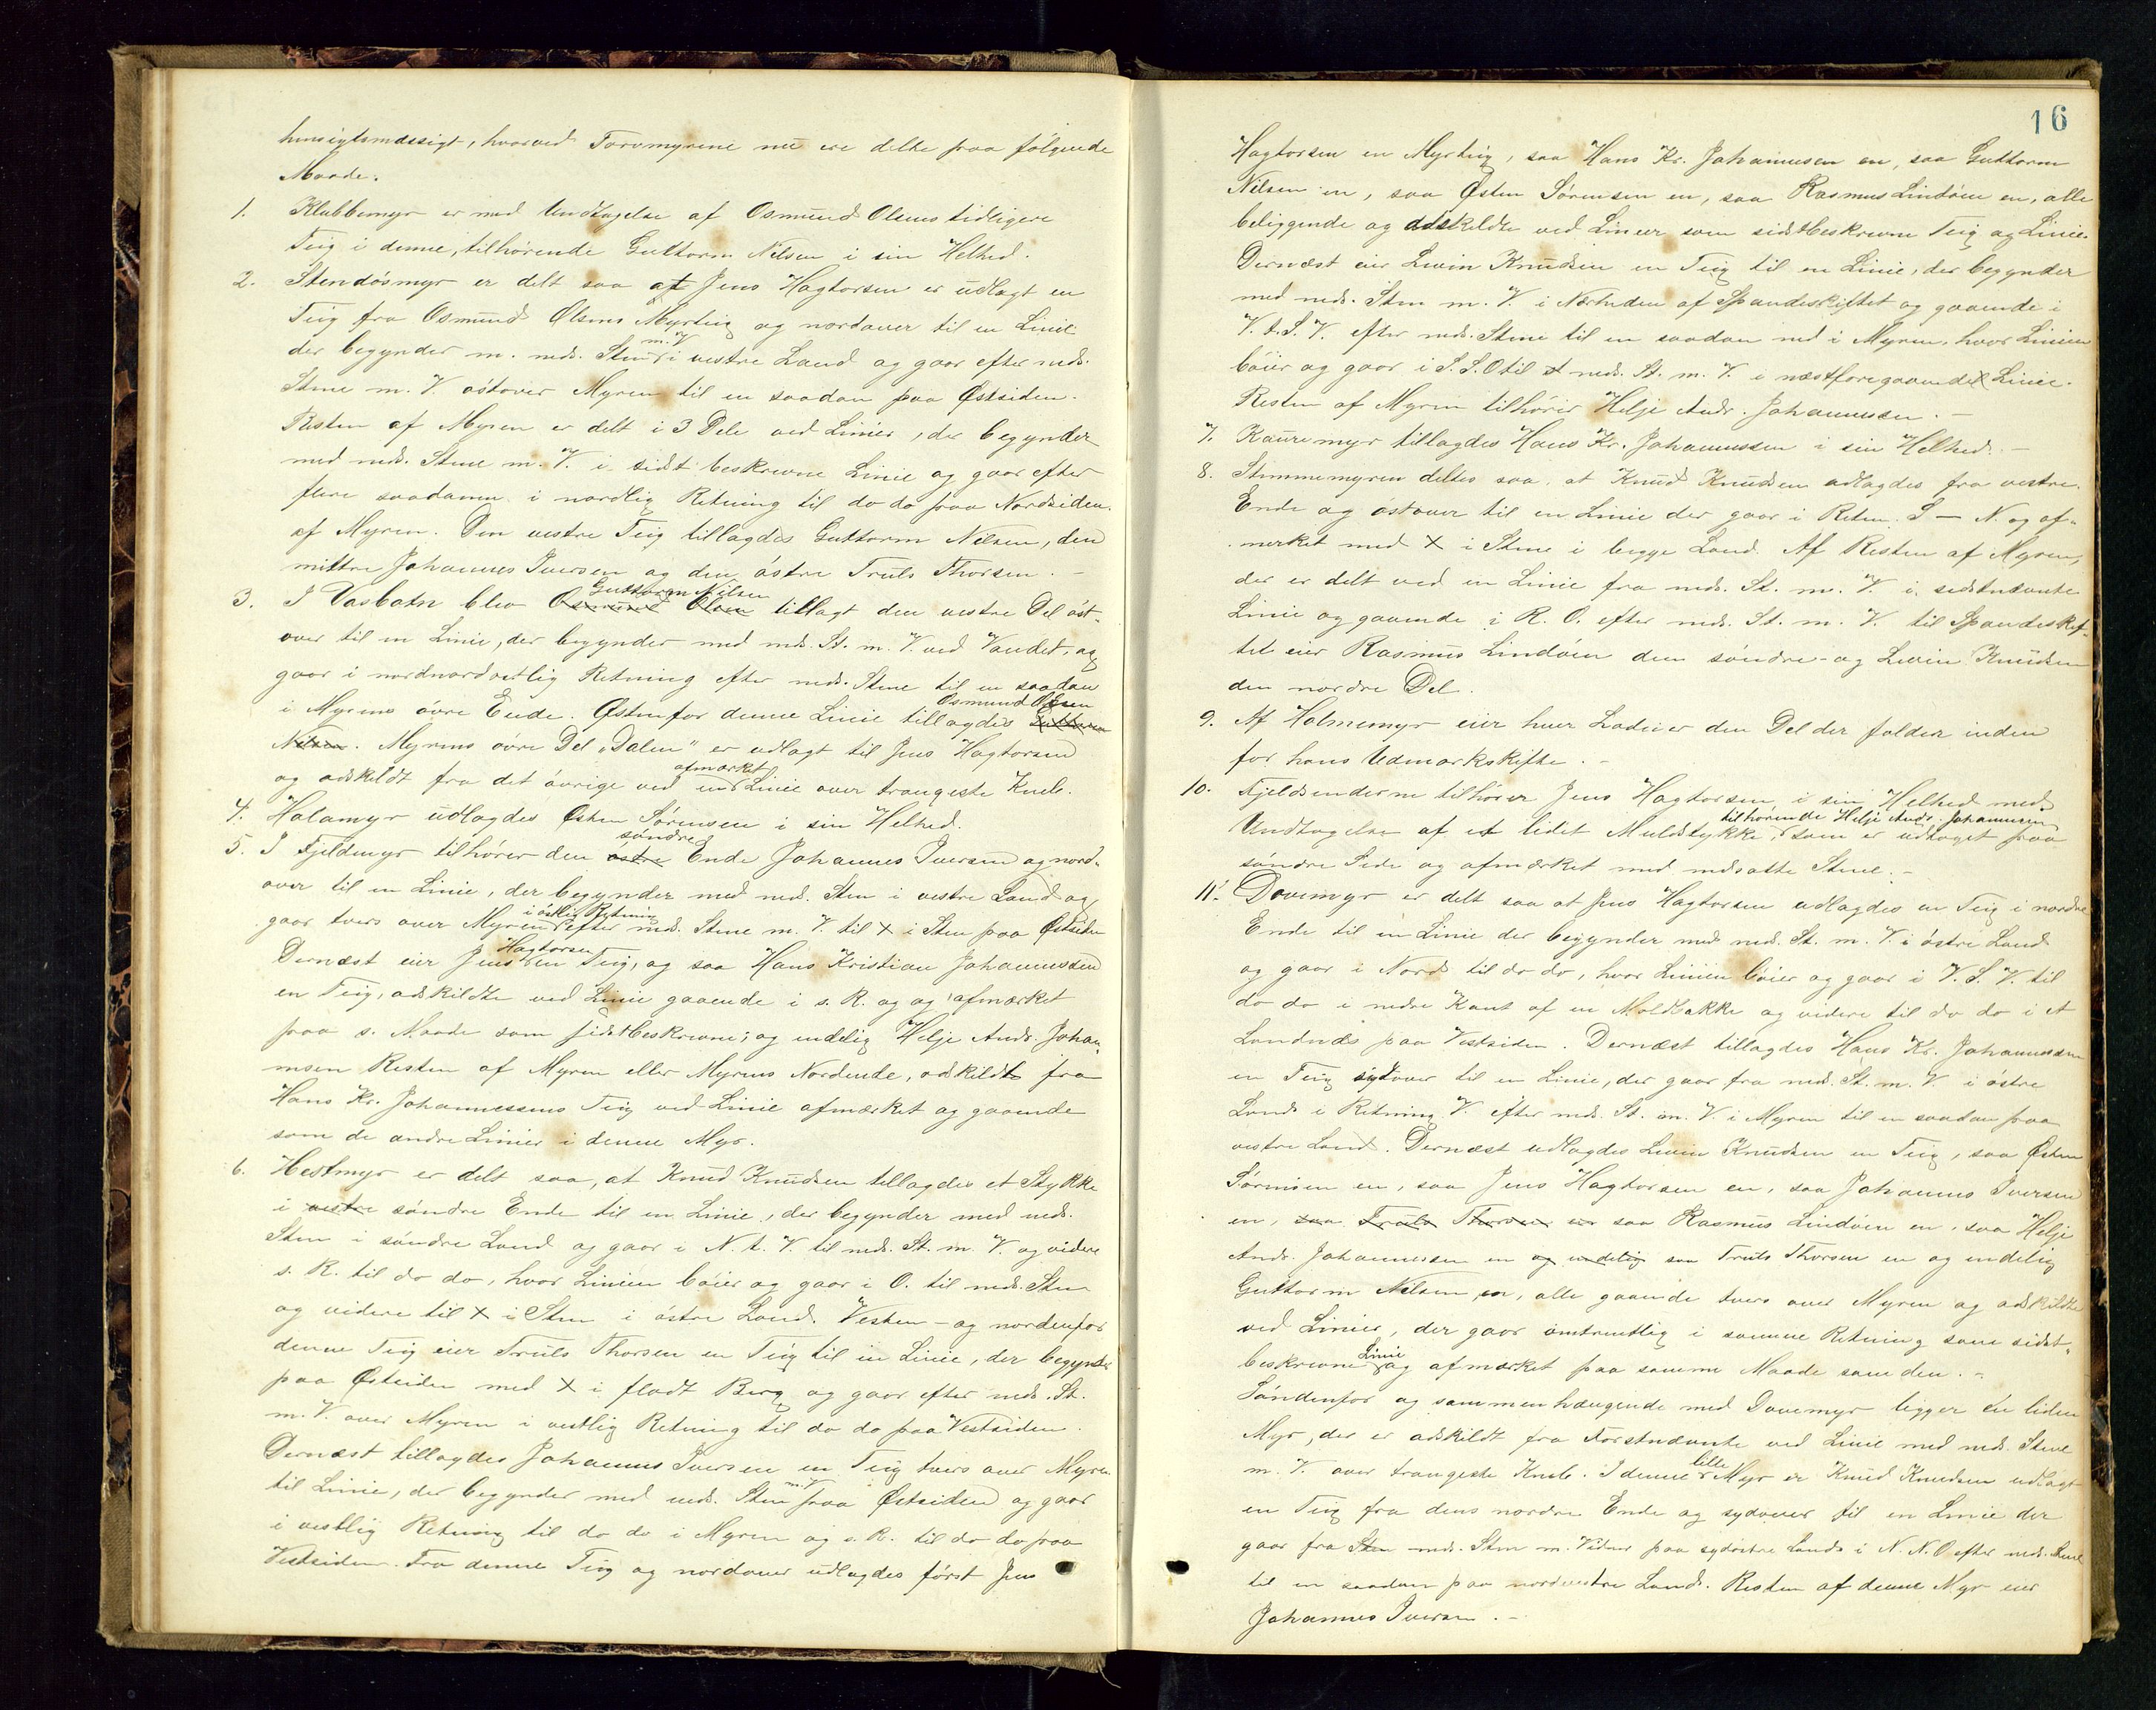 hensigtsmæssigt, hvorved Torvmyrene nu ere delte paa følgende
Maade.
1. Klubbemyr er med Undtagelse af Osmund Olsens tidligere
Teig i denne, tilhørende Guttorm Nilsen i sin Helhed.
2. Stendösmyr er delt saa at Jens Hagtorsen er udlagt en
Teig fra Osmund Olsens Myrteig og nordover til en Linie
der begynder m. neds. Sten m. V. i vestre Land og gaar efter neds.
Stene m. V. østover Myren til en saadan paa Østsiden.
Resten af Myren er delt i 3 Dele ved Linier, der begynder
med neds. Stene m. V. i sidst beskrevne Linie og gaar efter
flere saadanne i nordlig Retning til do do paa Nordsiden
af Myren. Den vestre Teig tillagdes Guttorm Nilsen, den
mittre Johannes Iversen og den østre Truls Thorsen.
3. I Vasbotn blev Osmund Olsen Guttorm Nilsen tillagt den vestre Del øst-
over til en Linie, der begynder med neds. St. m. V. ved Vandet, og
gaar i nordnordvestlig Retning efter neds. Stene til en saadan
i Myrens øvre Ende. Østenfor denne Linie tillagdes Guttorm Osmund Olsen
Nilsen. Myrens øvre Del "Dalen" er udlagt til Jens Hagtorsen
og adskildt fra det øvrige ved en afmærket Linie over trangeste Kneb.
4. Holamyr udlagdes Østen Sørensen i sin Helhed.
5. I Fjeldmyr tilhører den østre søndre Ende Johannes Iversen og nord-
over til en Linie, der begynder med ned. Sten i vestre Land og
gaar tvers over Myren i østlig Retning efter neds. Stene m. V. til X i Sten paa Østsiden
Dernæst eier Jens Hagtorsen en Teig, og saa Hans Kristian Johannessen
en Teig, adskildte ved Linie gaaende i s. R. og og afmærket
paa s. Maade som sidstbeskrevne; og endelig Helje Andr. Johan-
nesen Resten af Myren eller Myrens Nordende, adskildt fra
Hans Kr. Johannessens Teig ved Linie afmærket og gaaende
som de andre Linier i denne Myr.
6. Hestmyr er delt saa, at Knud Knudsen tillagdes et Stykke
i vestre søndre Ende til en Linie, der begynder med neds.
Sten i søndre Land og gaar i N. t. V. til neds. St. m. V. og videre
s. R. til do do, hvor Linien bøier og gaar i O. til neds. Sten
og videre til X i Sten i østre Land. Vesten- og nordenfor
denne Teig eier Truls Thorsen en Teig til en Linie, der begynder
paa Østsiden med X i fladt Berg og gaar efter neds. St.
m. V. over Myren i vestlig Retning til do do paa Vestsiden.
Dernæst tillagdes Johannes Iversen en Teig tvers over Myren
til Linie, der begynder med neds. Sten m. V. paa Østsiden og gaar
i vestlig Retning til do do i Myren og s. R. til do do paa
Vestsiden. Fra denne Teig og nordover udlagdes först Jens
16
Hagtorsen en Myrteig, saa Hans Kr. Johannesen en, saa Guttorm
Nilsen en, saa Østen Sørensen en, saa Rasmus Lindöen en, alle
beliggende og adskildte ved Linier som sidstbeskrevne Teig og Linie.
Dernæst eier Levin Knudsen en Teig til en Linie, der begynder
med neds. Sten m. V. i Nærheden af Spandeskiftet og gaaende i
V. t. S. V. efter neds. Stene til en saadan ned i Myren, hvor Linien
bøier og gaar i S. S. O til et neds. St. m. V. i næstforegaaende Linie.
Resten af Myren tilhører Helje Andr. Johannessen.
7. Kauremyr tillagdes Hans Kr. Johannessen i sin Helhed.
8. Stimmemyren deltes saa, at Knud Knudsen udlagdes fra vestre
Ende og østover til en Linie der gaar i Retn. S - N. og af-
mærket med X i Stene i begge Land. Af Resten af Myren,
der er delt ved en Linie fra neds. St. m. V. i sidstnævnte
Linie og gaaende i R. O. efter neds. St. m. V. til Spandeskif-
tet eier Rasmus Lindöen den søndre- og Levin Knudsen
den nordre Del.
9. Af Holmemyr eier hver Lodeier den Del der falder inden
for hans Udmarkskifte.
10. Fjeldsenderne tilhører Jens Hagtorsen i sin Helhed med
Undtagelse af et lidet Muldstykke, tilhørende Helje Andr. Johannesen som er udtaget paa
søndre Side og afmærket med nedsatte Stene.
11. Dovemyr er delt saa at Jens Hagtorsen udlagdes en Teig i nordre
Ende til en Linie der begynder med neds. St. m. V. i østre Land
og gaar i Nord til do do, hvor Linien bøier og gaar i V. S. V. til
do do i nedre Kant af en Moldbakke og videre til do do i et
Landnæs paa Vestsiden. Dernæst tillagdes Hans Kr. Johannessen
en Teig sydover til en Linie, der gaar fra neds. St. m. V. i østre
Land i Retning V. efter neds. St. m. V. i Myren til en saadan paa
vestre Land. Dernæst udlagdes Levin Knudsen en Teig, saa Østen
Sørensen en, saa Jens Hagtorsen en, saa Johannes Iversen
en, saa Truls Thorsen en saa Rasmus Lindöen en, saa Helje
Andr. Johannessen en og endelig saa Truls Thorsen en og endelig
Guttorm Nilsen en, alle gaaende tvers over Myren og adskildte
ved Linier, der gaar omtrentlig i samme Retning som sidst-
beskrevne Linie og afmærket paa samme Maade som den.
Söndenfor og sammenhængende med Dovemyr ligger en liden
Myr, der er adskildt fra Förstnævnte ved Linie med neds. Stene
m. V. over trangeste Kneb. I denne lille Myr er Knud Knudsen udlagt
en Teig fra dens nordre Ende og sydover til en Linie der
gaar fra Sten neds. Sten m. Vidner paa sydøstre Land i N. N. O efter neds. Stene
til en saadan paa nordvestre Land. Resten af denne Myr eier
Johannes Iversen.